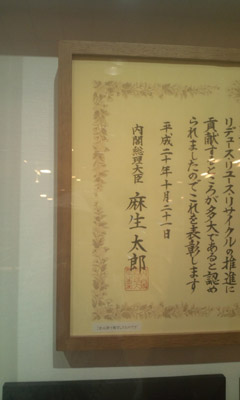 リデュースリユースリサイクルの推進に
貢献するところが多大であると認め
られましたのでこれを表彰します
平成二十年十月二十一日
内閣総理大臣 麻生太郎